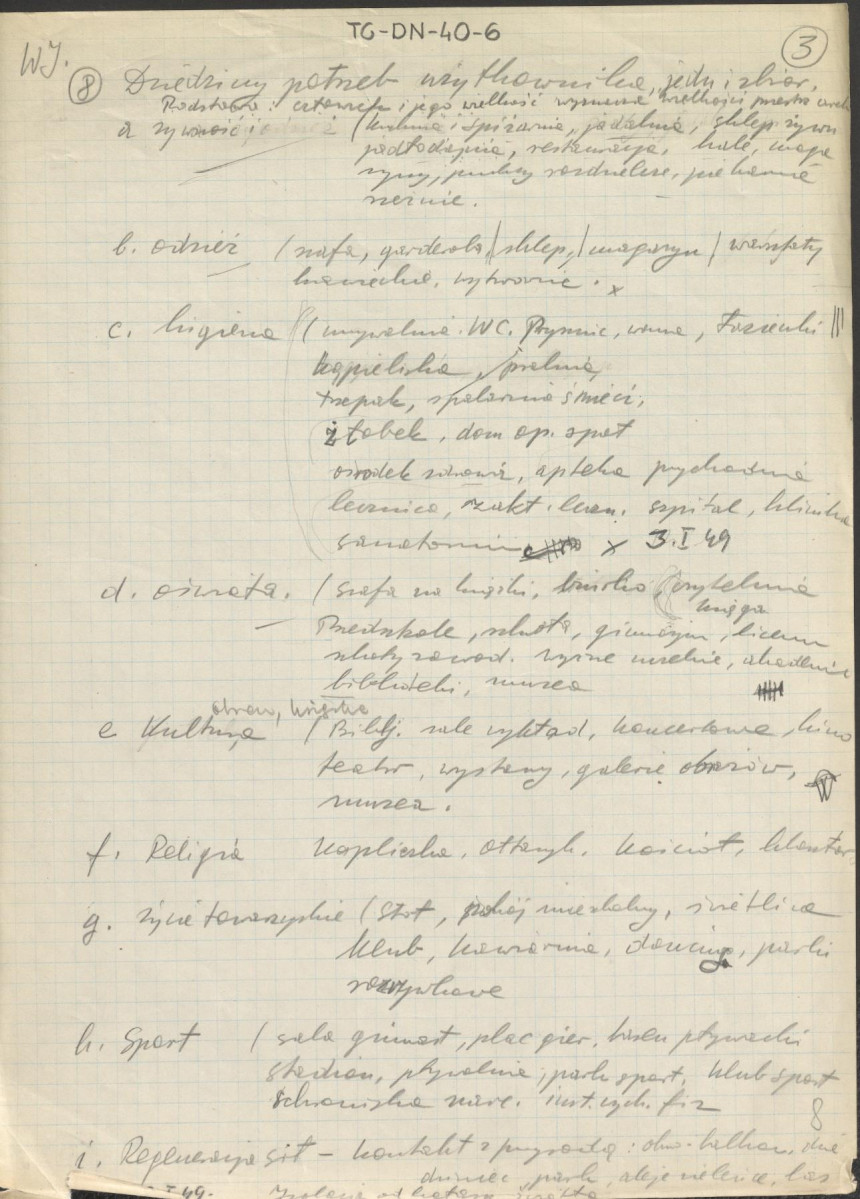 TG-DN-40-6
WJ.
3
8 Dziedziny potrzeb użytkownika, jedn i zbior.
Podstawa: człowiek i jego wielkość wyznacza wielkości
a żywność (kuchnia i spiżarnia, jadalnia, sklep żywn
restauracja, hale, maga
zyny, punkty rozdzielcze, piekarnie
rzeźnie.
b. odzież (szafa, garderoba, / sklep, / magazyn / warsztaty
krawieckie, wytwornie. x
c. higiena (umywalnia. WC. Prysznic, wanna, łazienki
kąpieliska, pralnia,
trzepak, spalarnia śmieci,
żłobek, dom op. społ
ośrodek zdrowia, apteka przychodnia
lecznica, zakł. leczn. szpital, klinika
sanatorium x 3.I 49
d. oświata. (szafa na książki, biurko, czytelnia
księga
Przedszkole, szkoła, gimnazjum, liceum
szkoły zawod. wyższe uczelnie, akademie
biblioteki, muzea
obraz, książka
e Kultura (Bibl. sale wykład, koncertowe, kino
teatr, wystawy, galerie obrazów,
muzea.
f. Religia kapliczka, ołtarzyk, kościół, klasztor
g. życie towarzyskie (stół, pokój mieszkalny, świetlica
klub, kawiarnia, dancing, parki
rozrywkowe
h. Sport (sala gimnast, plac gier, basen pływacki
stadion, pływalnia, park sport, klub sport
schroniska narc. inst. wych. fiz
8
i. Regeneracja sił – kontakt z przyrodą: okno balkon,
dziniec, park, aleje zieleńce, las
I 49. Izolacja od hałasu